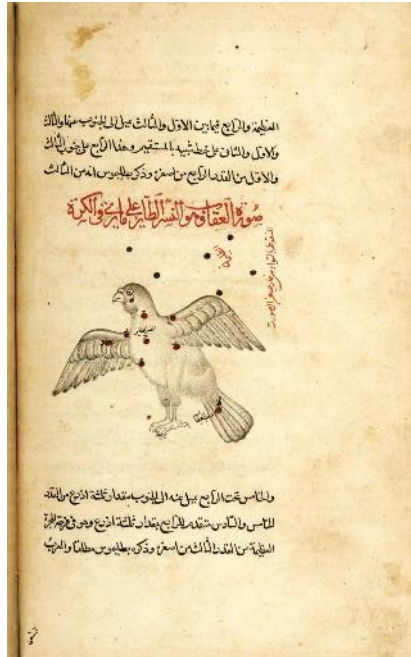 العظيمة والرابع فيما بين الاول والثالث يميل الى الجنوب عنهما والثالث
والاول والثانى على خط شبيه بالمستقيم وهذا الرابع على
والاول من القدر الرابع من اصغره وذكر بطلميوس انه من الثالث
صورة العقاب وهو النسر الطاير على ما يرى فى الكرة
والخامس تحت الرابع يميل عنه الى الجنوب بمقدار ثلثة اذرع من القدر
الخامس والسادس يتقدم الرابع بمقدار ثلثة اذرع وهو فى
العظيمة من القدر الثالث من اصغره وذكره بطلميوس مطلقا والعرب